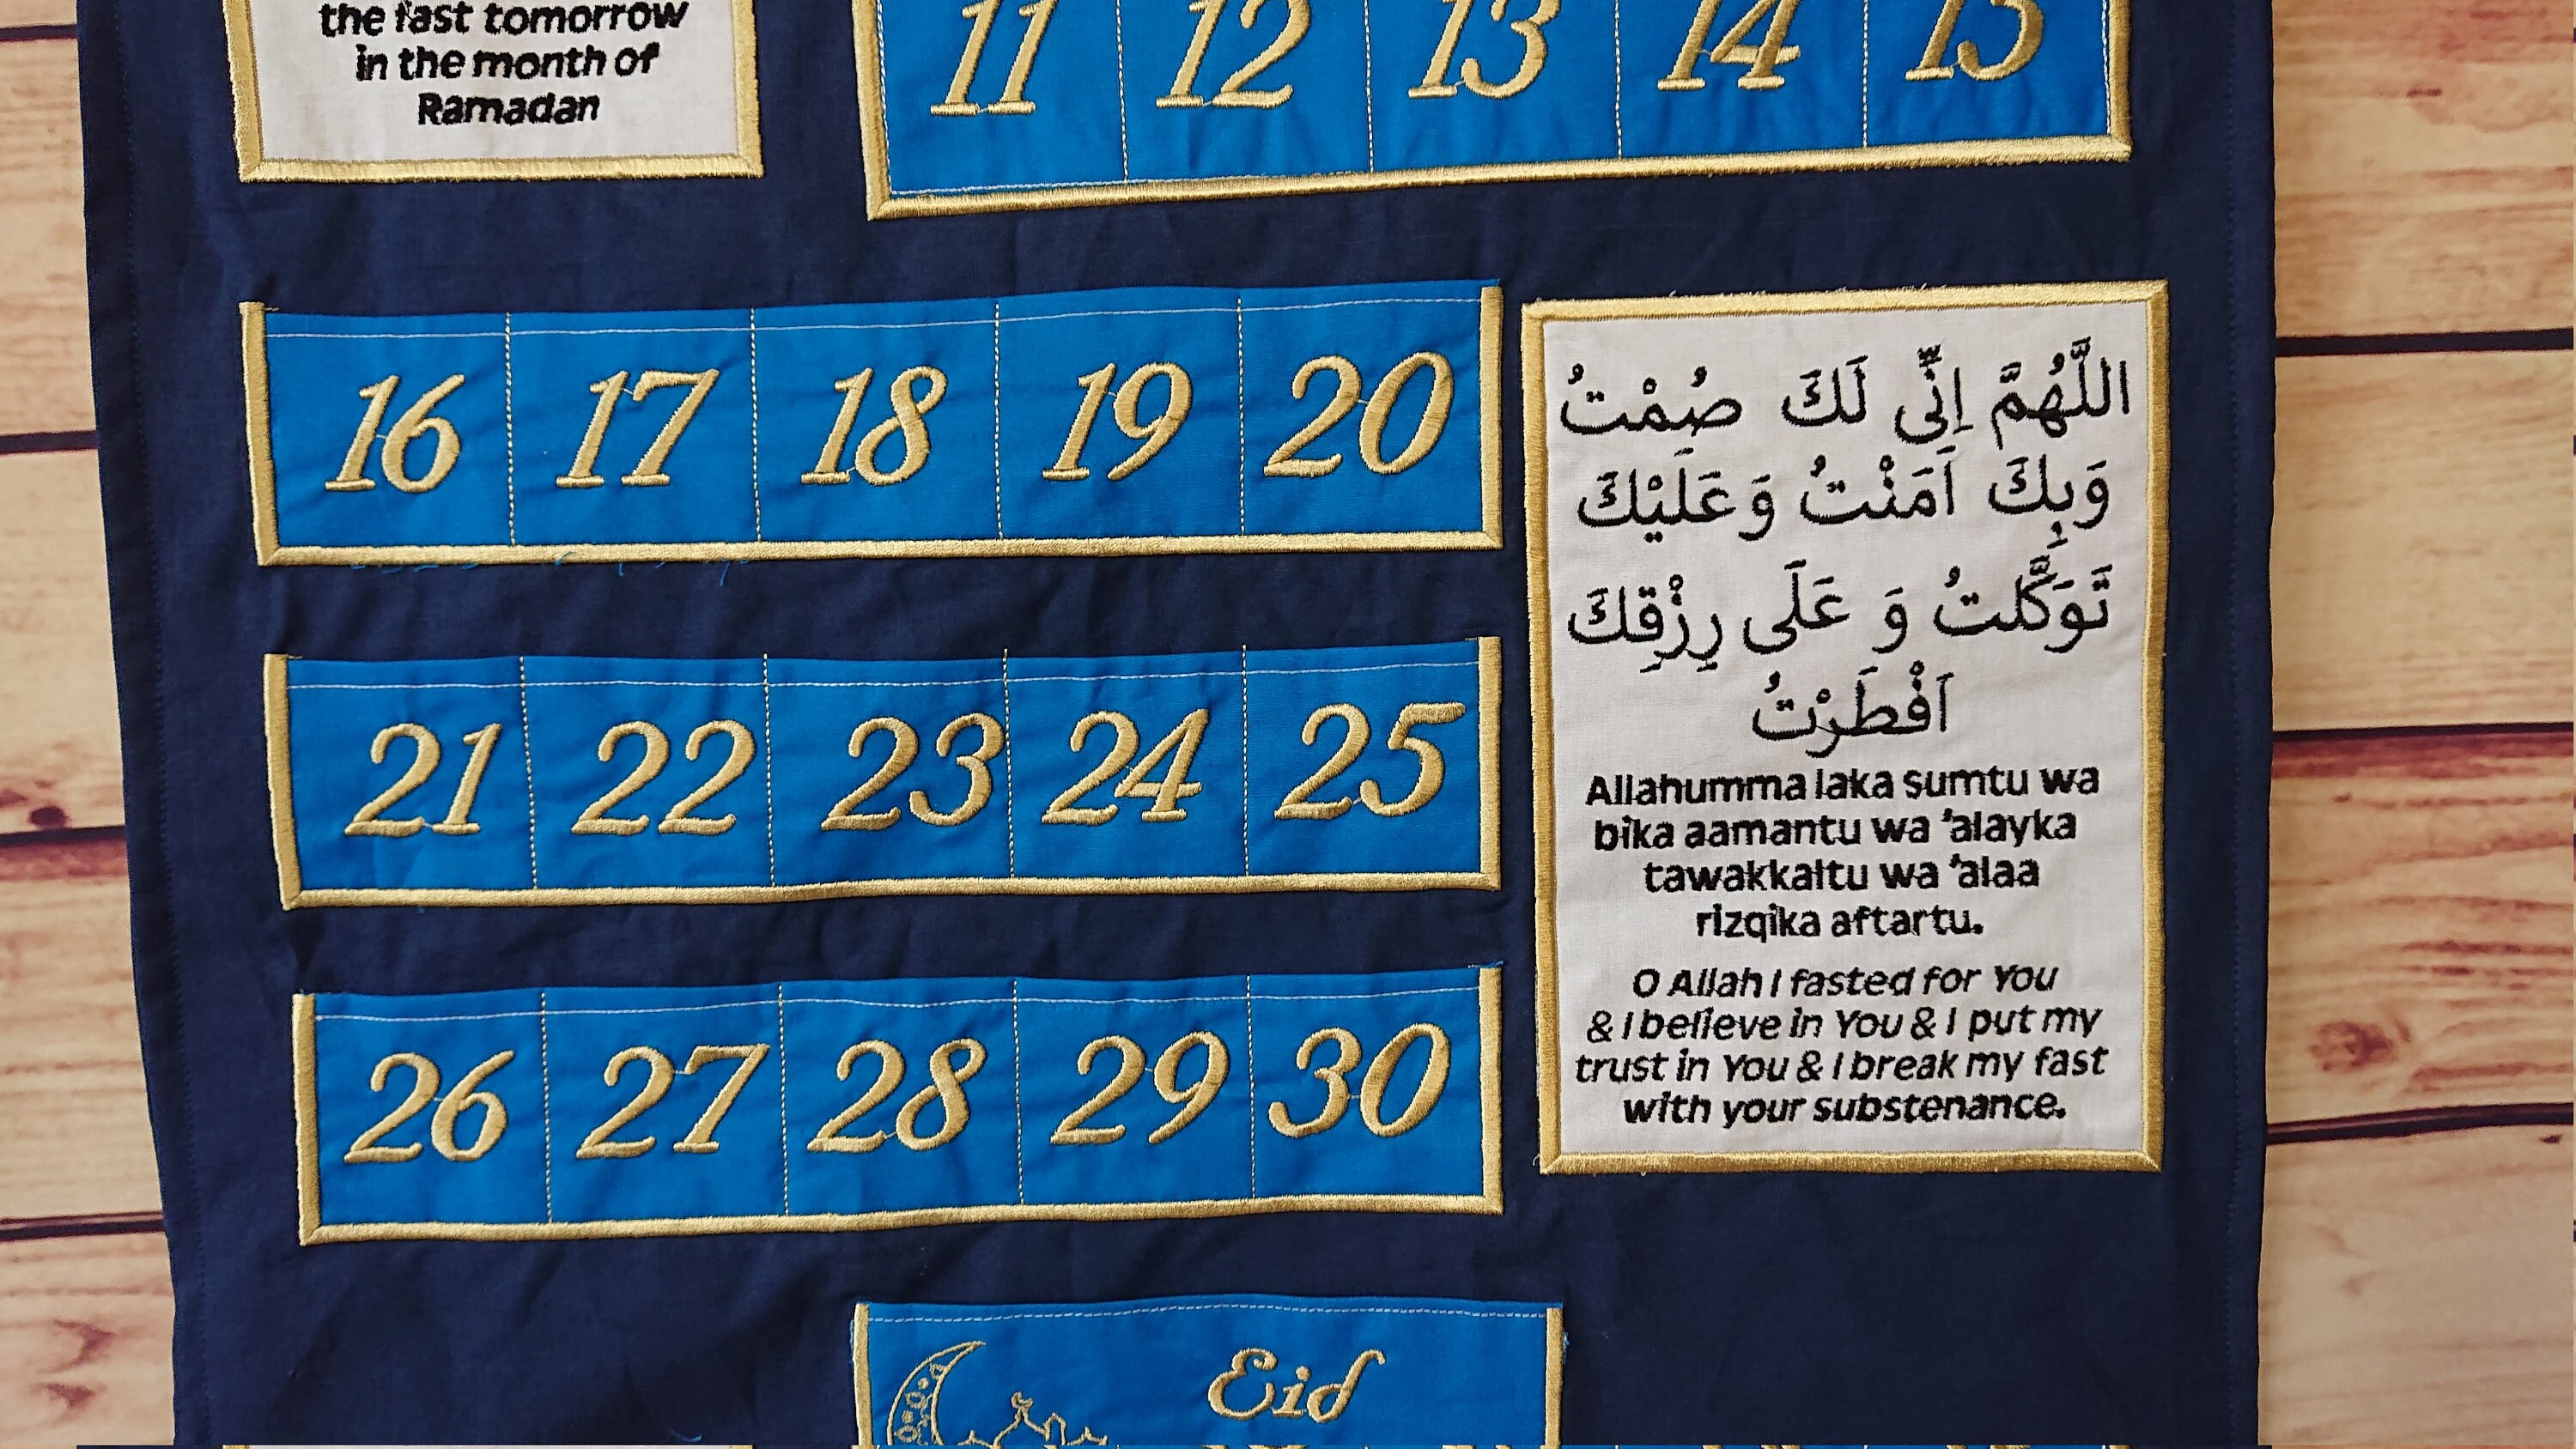 the fast tomorrow
in the month of
Ramadan
11 12 13 14 15
16 17 18 19 20
21 22 23 24 25
26 27 28 29 30
اللَّهُمَّ اِنِّى لَكَ صُمْتُ
وَبِكَ اَمَنْتُ وَعَلَيْكَ
تَوَكَّلتُ وَ عَلَى رِزْقِكَ
اَفْطَرْتُ
Allahumma laka sumtu wa
bika aamantu wa 'alayka
tawakkaltu wa 'alaa
rizqika aftartu.
O Allah I fasted for You
& I believe in You & I put my
trust in You & I break my fast
with your substenance.
Eid